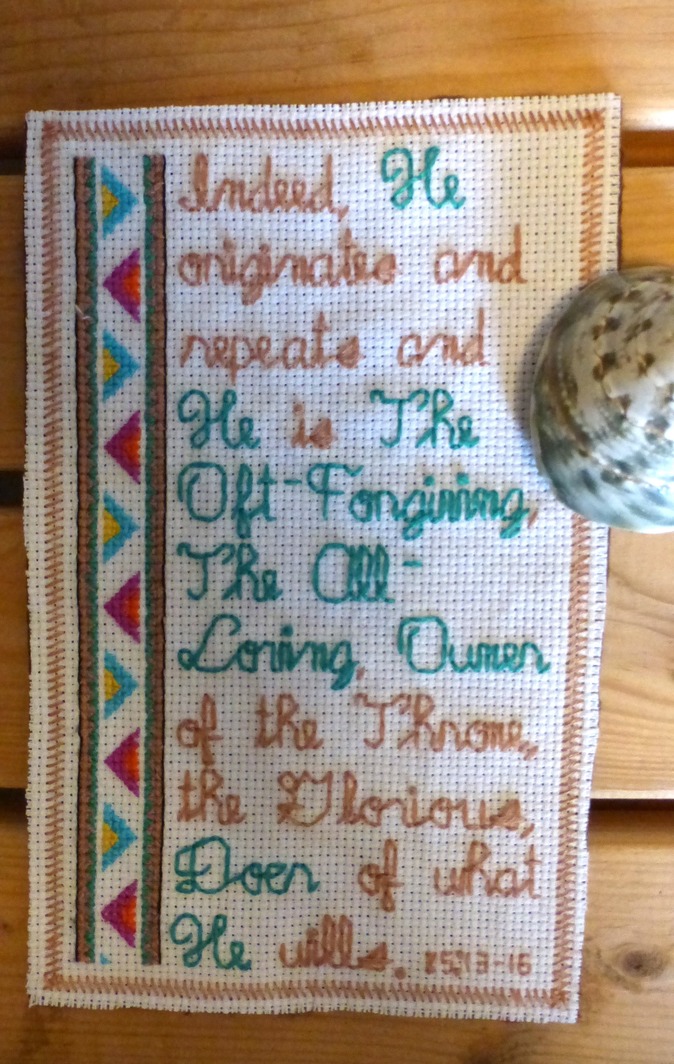 Indeed, He
originates and
repeats and
He is The
Oft-Forgiving,
The All-
Loving, Owner
of the Throne,
the Glorious,
Doer of what
He wills. 85:13-16